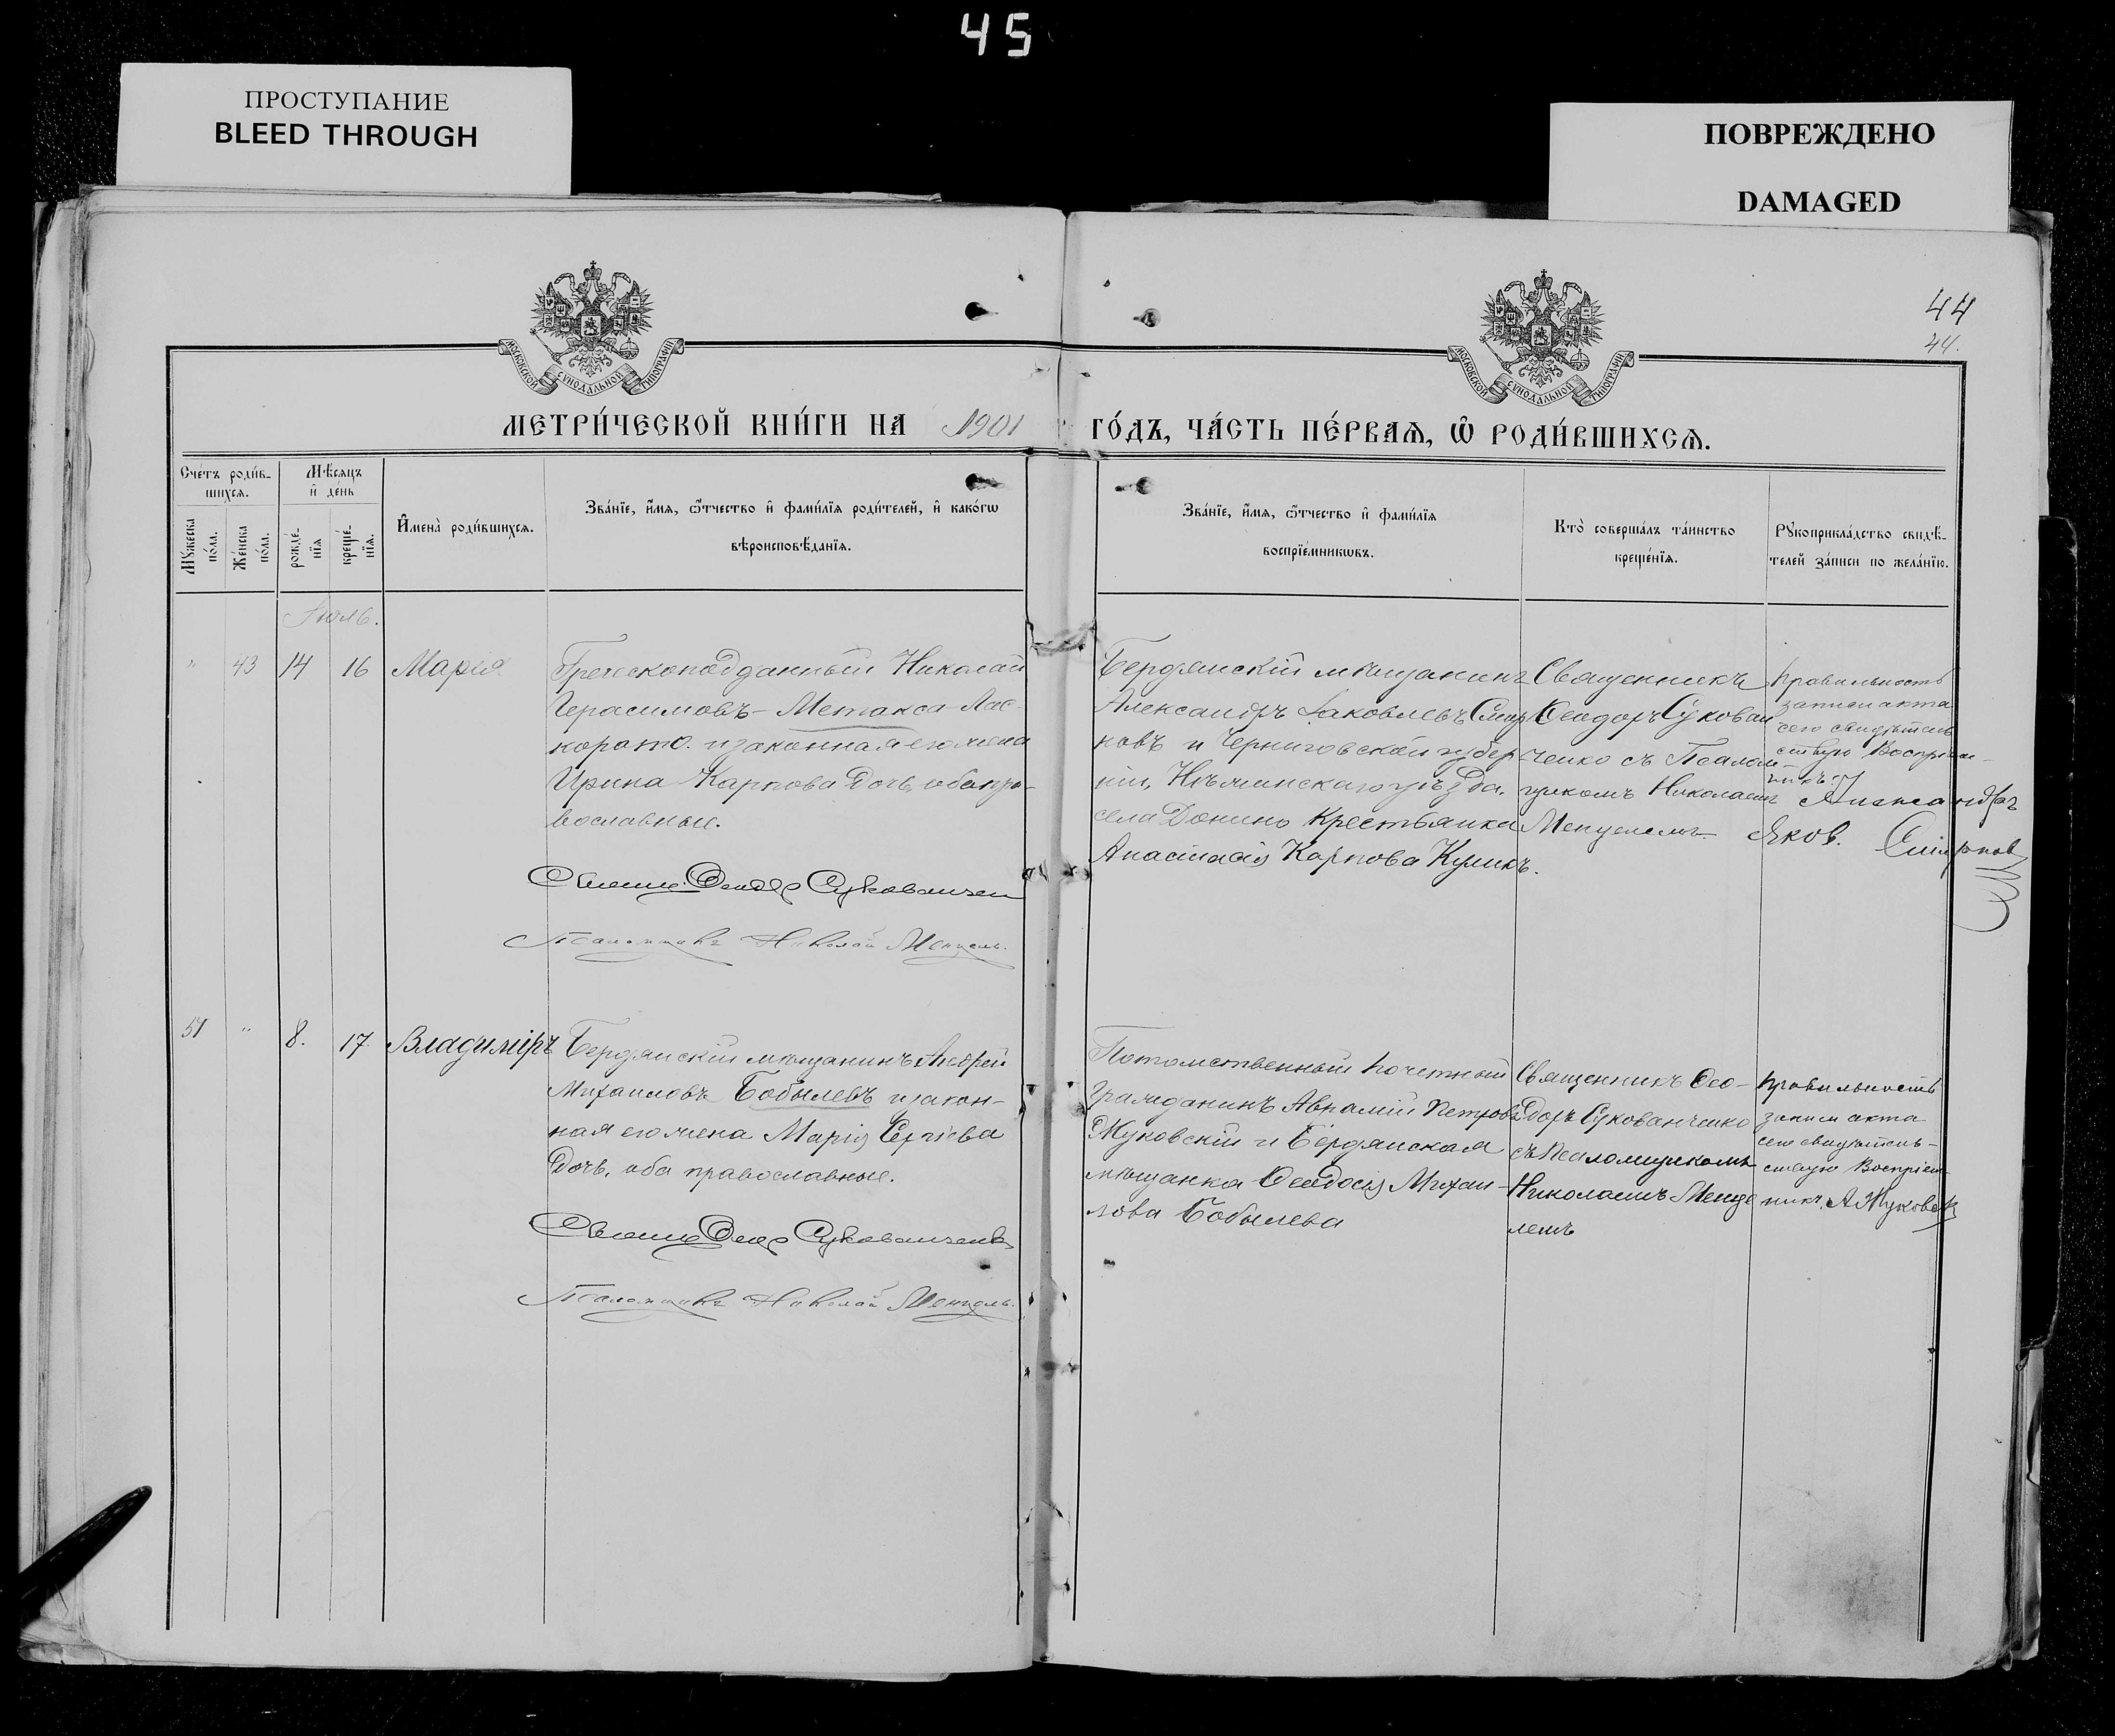 45
ПРОСТУПАНИЕ
BLEED THROUGH
ПОВРЕЖДЕНО
DAMAGED
44
44.
МОСКОВСКОЙ СУНОДАЛЬНОЙ ТИПОГРАФІИ
МОСКОВСКОЙ СУНОДАЛЬНОЙ ТИПОГРАФІИ
МЕТРИ́ЧЕСКОЙ КНИ́ГИ НА 1901 ГО́ДЪ, ЧА́СТЬ ПЕ́РВАѦ, Ѡ҆ РОДИ́ВШИХСѦ.
Сче́тъ роди́в-
шихсѧ.
Мꙋ́жеска
по́ла.
Же́нска
по́ла.
Мѣ́сѧцъ
и҆ де́нь
рожде́-
нїѧ
креще́-
нїѧ.
И҆мена̀ роди́вшихсѧ.
Зва́нїе, и҆́мѧ, ѻ҆́тчество и҆ фами́лїѧ роди́телей, и҆ како́гѡ
вѣроисповѣ́данїѧ.
Зва́нїе, и҆́мѧ, ѻ҆́тчество и҆ фами́лїѧ
воспрїе́мникѡвъ.
Кто̀ соверша́лъ та́инство
креще́нїѧ.
Рꙋкоприкла́дство свидѣ́-
телей за́писи по жела́нїю.
Іюль.
" 43 14 16 Марія
Греческоподданный Николай
Герасимовъ Метакса-Лас-
корато. и законная его жена
Ирина Карпова дочь, оба пра-
вославные.
Священ. Ѳеодор Сукованчен
Псаломщикъ Николай Менцель.
Бердянскій мѣщанинъ
Александръ Іаковлевъ Смир
новъ и Черниговской губер
ніи, Нѣжинскаго уѣзда,
села Донино Крестьянка
Анастасія Карпова Куликъ.
Священникъ
Ѳеодоръ Сукован
ченко съ Псалом-
щикомъ Николаемъ
Менцелемъ
Правильность
записи акта
сего свидѣтель
ствую Воспріем-
никъ
Александръ
Яков. Смирнов
57 " 8. 17. Владиміръ
Бердянскій мѣщанинъ Андрей
Михаиловъ Бобылевъ и закон-
ная его жена Марія Сергіева
дочь, оба православные.
Священ. Ѳеод. Сукованченко
Псаломщикъ Николай Менцель.
Потомственный почетный
Гражданинъ Аврамій Петровъ
Жуковскій и Бердянская
мѣщанка Ѳеодосія Михаи-
лова Бобылева
Священникъ Ѳео-
доръ Сукованченко
съ Псаломщикомъ
Николаемъ Менце
лемъ
Правильность
записи акта
сего свидѣтель-
ствую Воспріем
никъ А Жуковск